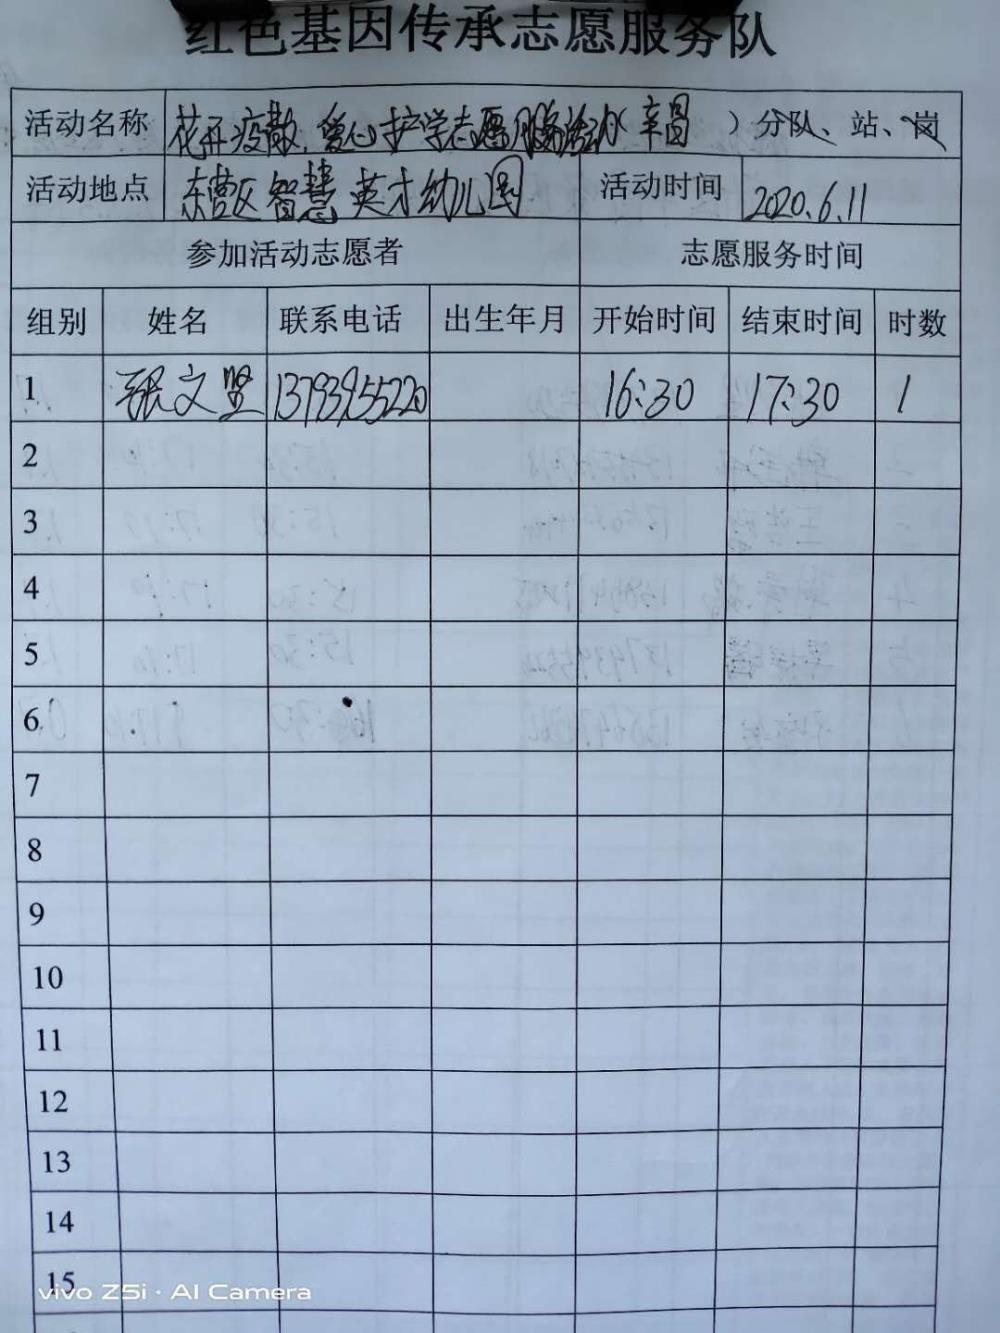 红色基因传承志愿服务队
活动名称 花开疫散.爱心护学志愿服务活动(辛昌 )分队、站、岗
活动地点 东营区智慧英才幼儿园 活动时间 2020.6.11
参加活动志愿者 志愿服务时间
组别 姓名 联系电话 出生年月 开始时间 结束时间 时数
1 张文坚 13793955220 16:30 17:30 1
2
3
4
5
6
7
8
9
10
11
12
13
14
15
vivo Z5i · AI Camera